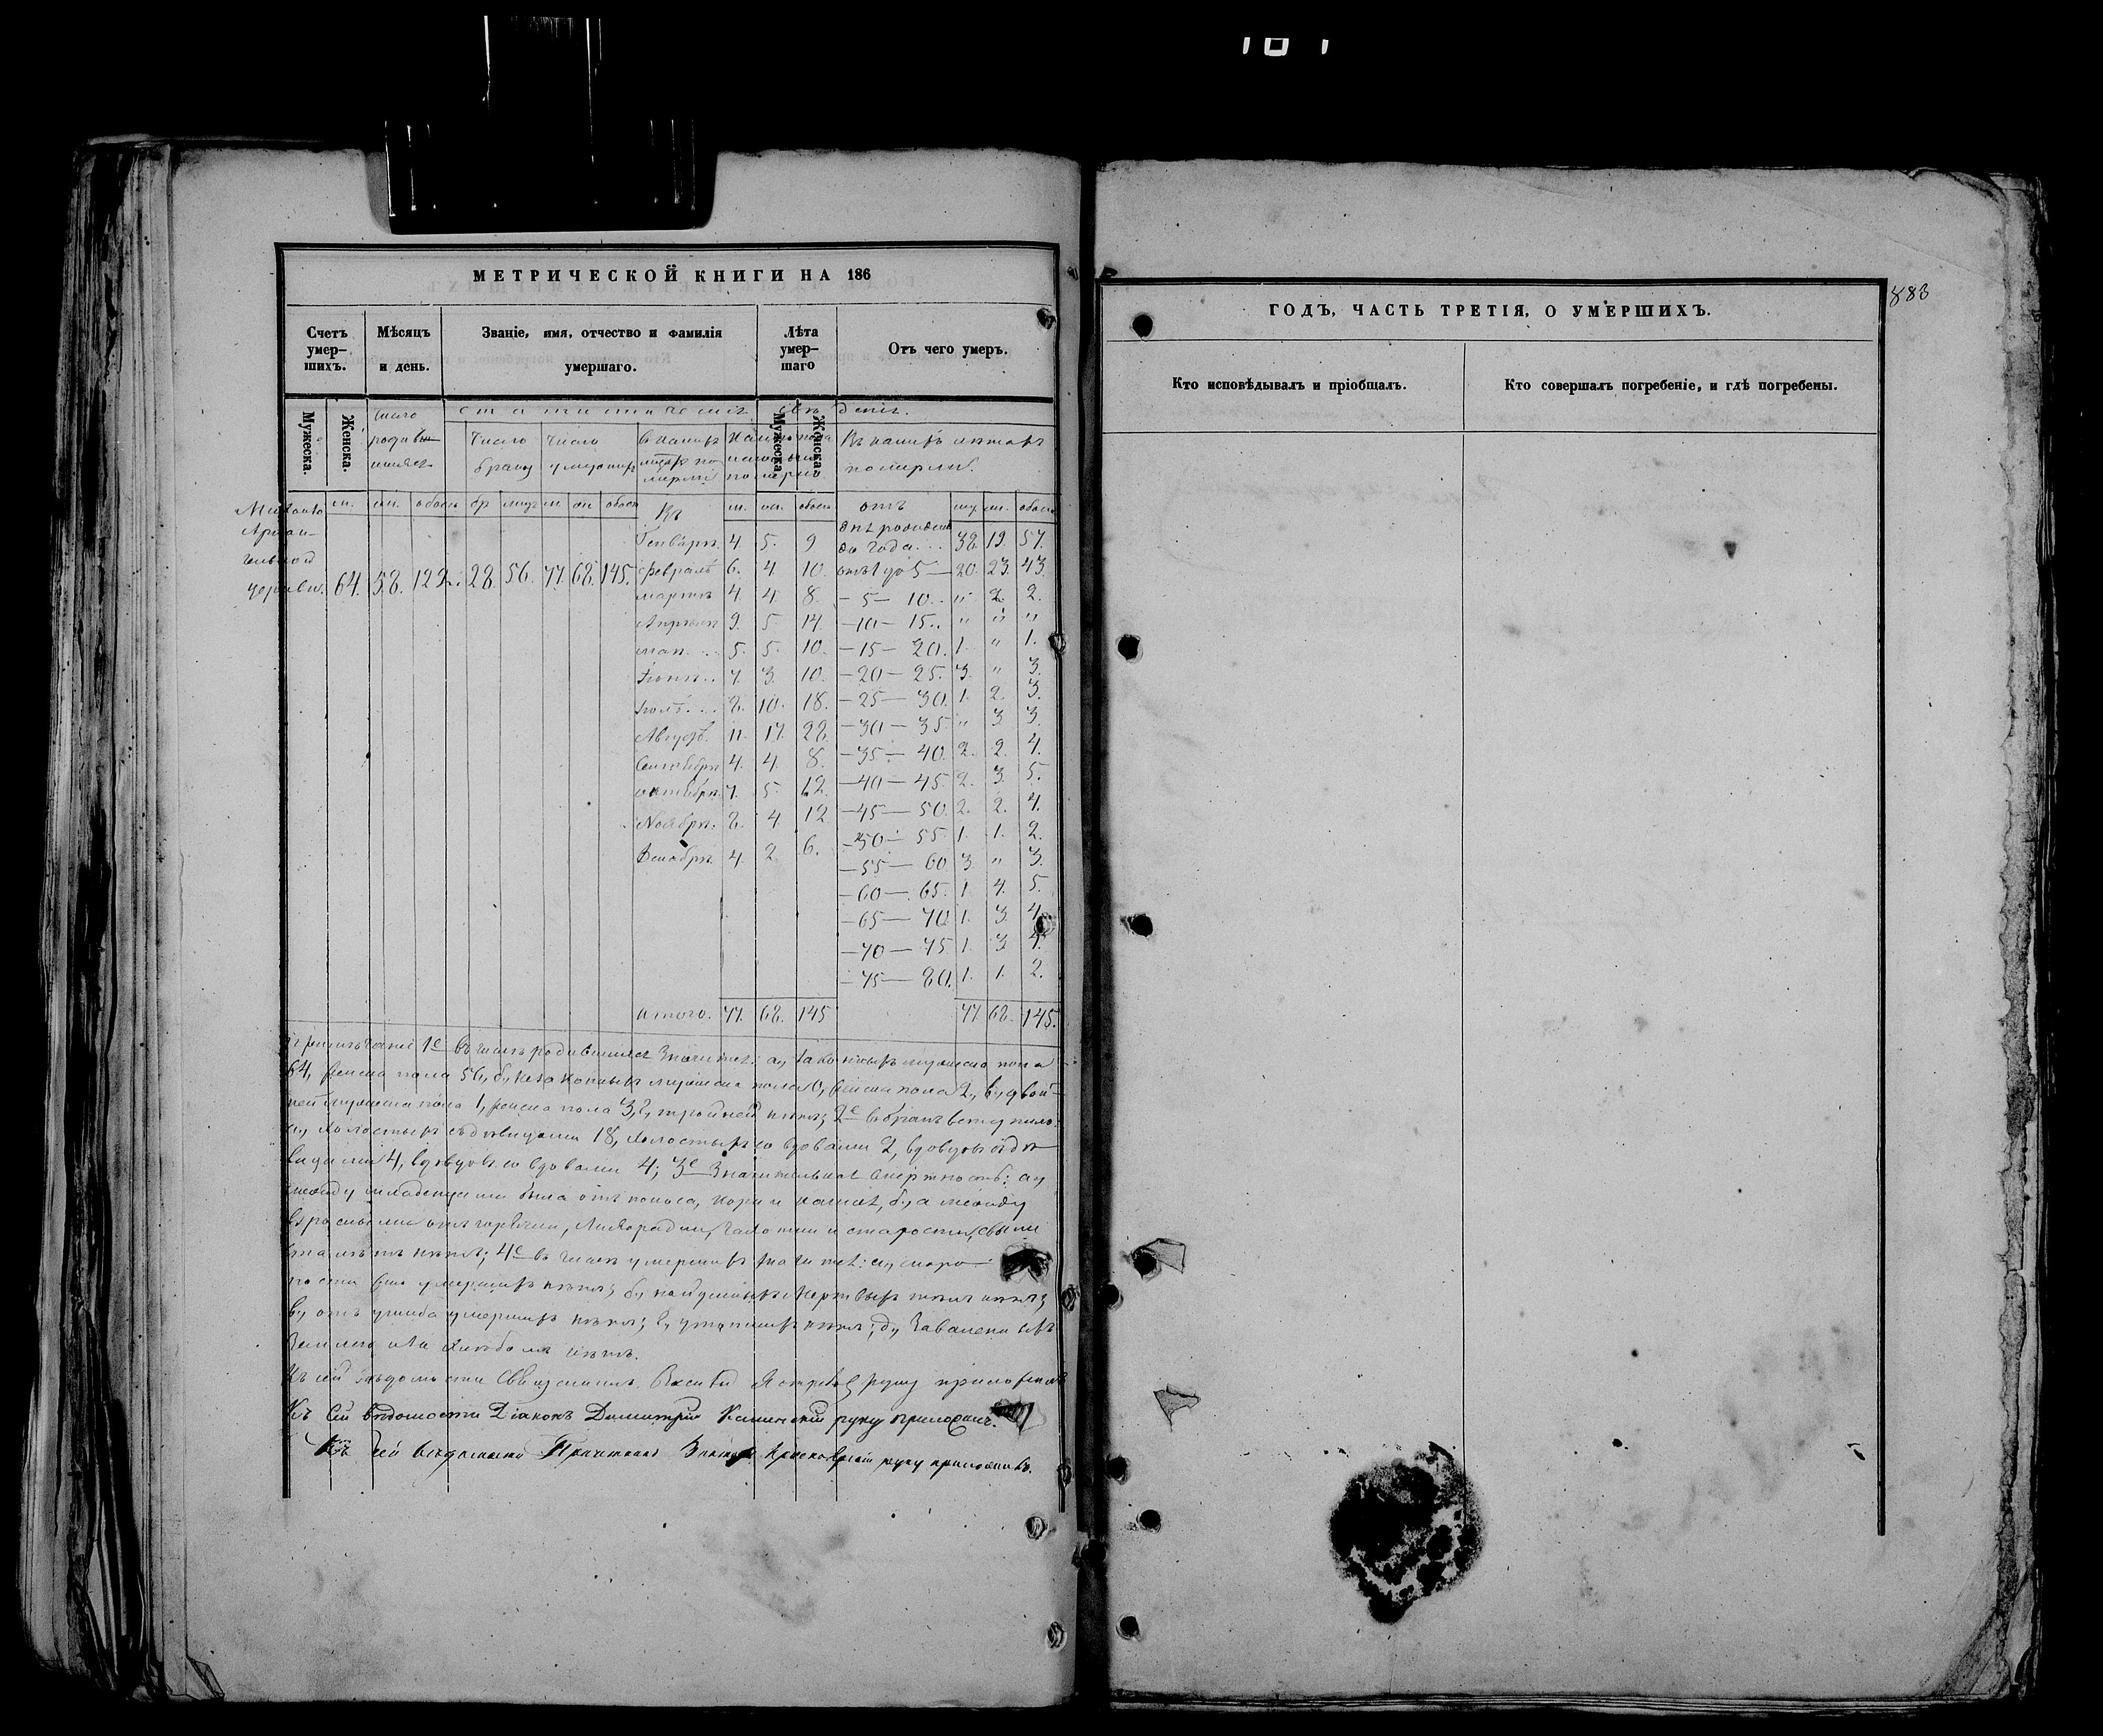 МЕТРИЧЕСКОЙ КНИГИ НА 186
Счетъ умер-шихъ. Мѣсяцъ и день. Званіе, имя, отчество и фамилія умершаго. Лѣта умер-шаго Отъ чего умеръ.
Мужеска. Женска. Мужеска. Женска.
Число родив
статистическія свѣденія.
Число браку Число умершихъ
Въ какихъ лѣтахъ померли.
м. ж. обоего бр. лицъ м. ж. обоего Въ м. ж. обоего отъ муж. ж. обоего
Михаило Архан-гельской церкви. 64. 58. 122. 28. 56. 77. 68. 145.
Генварѣ. 4. 5. 9
Февралѣ 6. 4 10.
мартѣ 4 4 8.
Апрѣлѣ 9. 5. 14.
маѣ. 5. 5. 10.
Іюнѣ.. 7. 3. 10.
Іюлѣ... 8. 10. 18.
Августѣ 11. 17. 28.
Сентябрѣ 4. 4. 8.
октябрѣ. 7. 5. 12.
Ноябрѣ. 8. 4 12
Декабрѣ 4. 2. 6.
итого. 77. 68. 145
до года... 38. 19. 57.
отъ 1 до 5 — 20. 23. 43.
— 5 — 10.. " 2. 2.
— 10 — 15.. " " "
— 15 — 20. 1. " 1.
— 20 — 25. 3. " 3.
— 25 — 30. 1. 2. 3.
— 30 — 35. " 3 3.
— 35 — 40. 2. 2. 4.
— 40 — 45. 2. 3. 5.
— 45 — 50. 2. 2. 4.
— 50 — 55. 1. 1. 2.
— 55 — 60 3. " 3.
— 60 — 65. 1 4. 5.
— 65 — 70. 1. 3. 4.
— 70 — 75 1. 3 4.
— 75 — 80. 1. 1. 2.
77 68. 145.
Примѣчаніе 1е въ числѣ родившихся значится: а, законныхъ мужеска пола
64, женска пола 56, б, незаконныхъ мужеска пола 0, женска пола 2, в, двой-
ней мужеска пола 1, женска пола 3, г, тройней нѣтъ; 2е въ бракъ вступило:
а, холостыхъ съ дѣвицами 18, холостыхъ со вдовами 2, вдовцовъ съ дѣ-
вицами 4, вдовцовъ со вдовами 4; 3е Значительная смертность: а,
между младенцами была отъ поноса, кори и кашля, б, а между
взрослыми отъ горячки, лихорадки, чахотки и старости, свыше
ста лѣтъ нѣтъ; 4е въ числѣ умершихъ значится: а, скоро
постижно умершихъ нѣтъ; б, найденныхъ мертвыхъ тѣлъ нѣтъ;
в, отъ ушиба умершихъ нѣтъ; г, утопшихъ нѣтъ; д, заваленныхъ
землею или нѣтъ.
Къ сей вѣдомости Священникъ руку приложилъ
Къ сей вѣдомости Діаконъ Димитрій руку приложилъ.
Къ сей вѣдомости руку приложилъ.
ГОДЪ, ЧАСТЬ ТРЕТІЯ, О УМЕРШИХЪ.
883
Кто исповѣдывалъ и пріобщалъ. Кто совершалъ погребеніе, и гдѣ погребены.